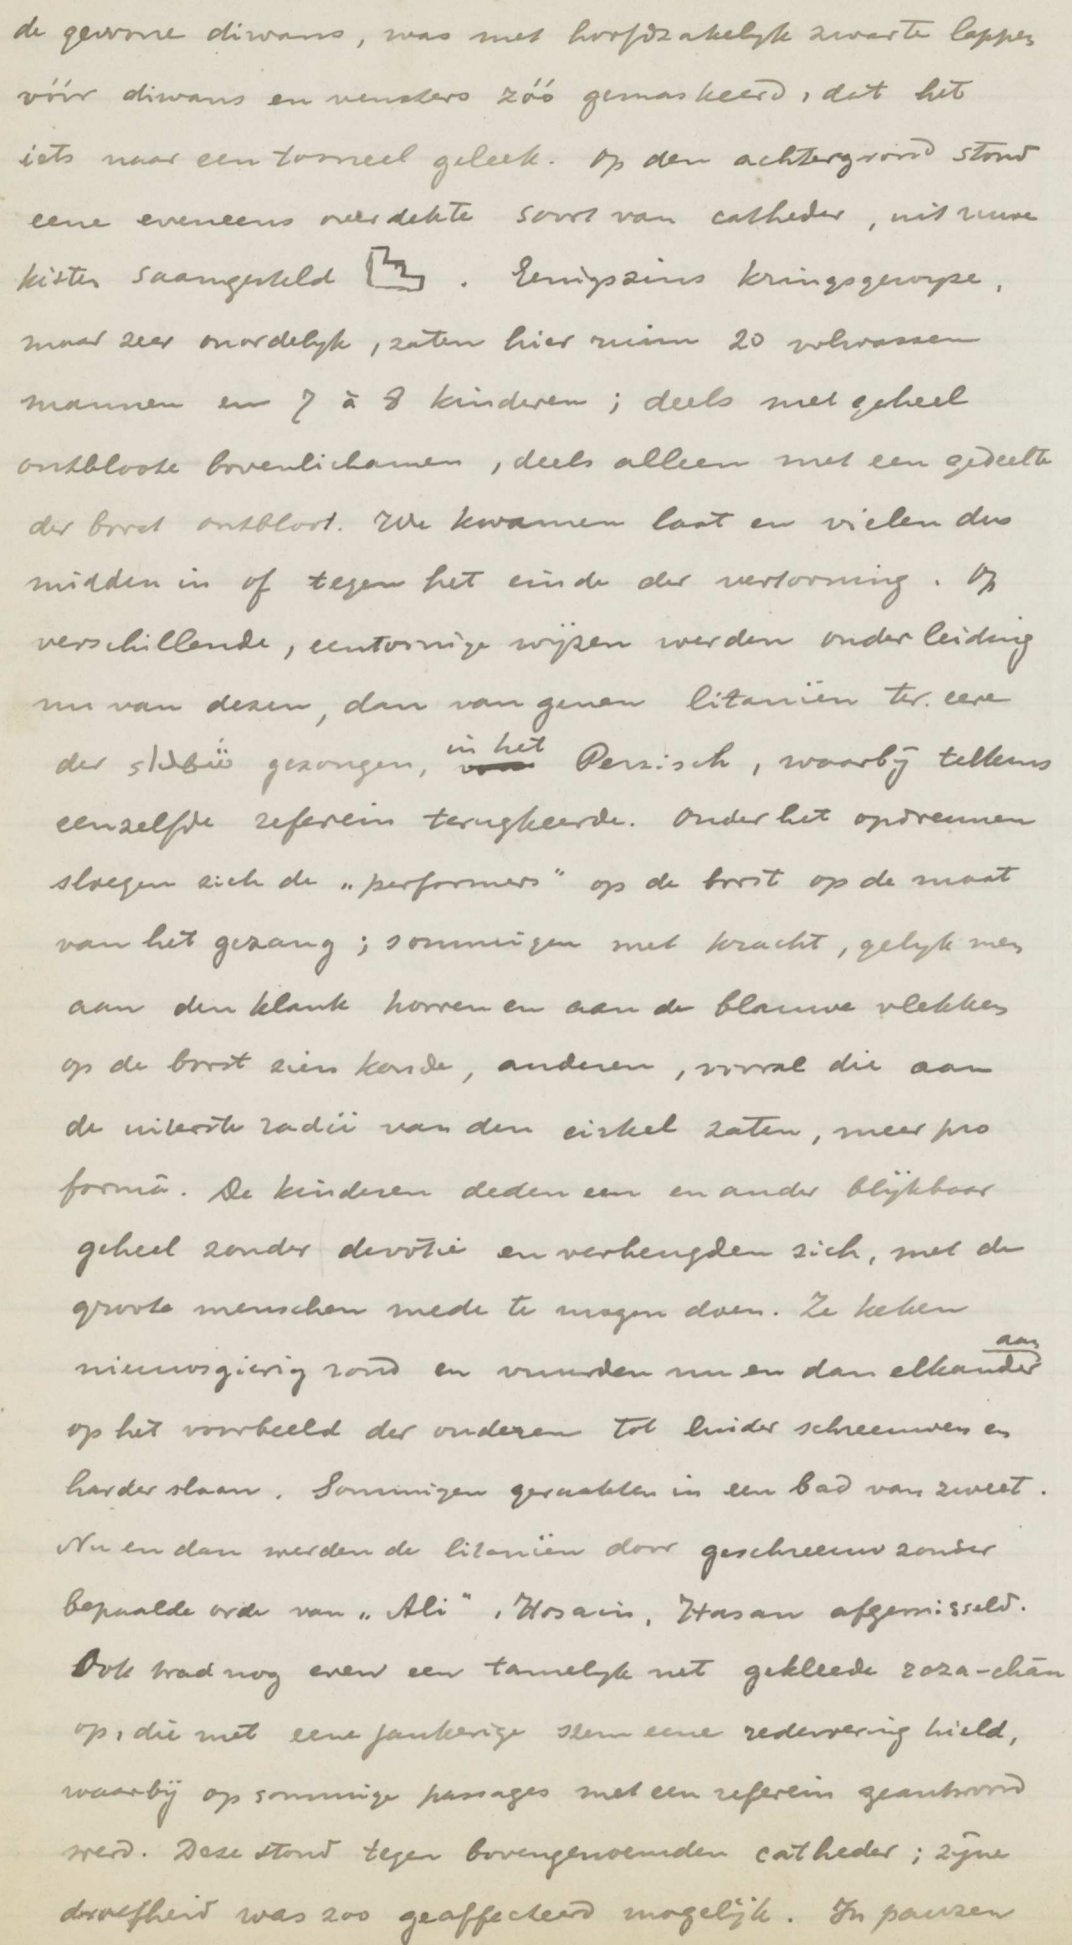 de gewone diwans, was met hoofdzakelyk zwarte lappen
vóór diwans en vensters zóó gemaskeerd, dat het
iets naar een tooneel geleek. Op den achtergrond stond
eene eveneens overdekte soort van catheder, uit ruwe
kisten saamgesteld . Eenigszins kringsgewyze,
maar zeer onordelyk, zaten hier ruim 20 volwassen
mannen en 7 à 8 kinderen; deels met geheel
ontbloote bovenlichamen, deels alleen met een gedeelte
der borst ontbloot. We kwamen laat en vielen dus
midden in of tegen het einde der vertooning. Op
verschillende, eentonige wijzen werden onder leiding
nu van dezen, dan van genen litaniën ter eere
der gezongen, in het Perzisch, waarbÿ telkens
eenzelfde referein terugkeerde. Onder het opdreunen
sloegen zich de „performers" op de borst op de maat
van het gezang; sommigen met kracht, gelyk men
aan den klank hooren en aan de blauwe vlekken
op de borst zien konde, anderen, vooral die aan
de uiterste radii van den cirkel zaten, meer pro
formâ. De kinderen deden een en ander blÿkbaar
geheel zonder devotie en verheugden zich, met de
groote menschen mede te mogen doen. Ze keken
nieuwsgierig rond en vuurden nu en dan elkander aan
op het voorbeeld der ouderen tot luider schreeuwen en
harder slaan. Sommigen geraakten in een bad van zweet.
Nu en dan werden de litaniën door geschreeuw zonder
bepaalde orde van „Ali", Hosain, Hasan afgewisseld.
Ook trad nog even een tamelyk net gekleede roza-chân
op, die met eene jankerige stem eene redevoering hield,
waarbÿ op sommige passages met een referein geantwoord
werd. Deze stond tegen bovengenoemden catheder; zÿne
droefheid was zoo geaffecteerd mogelÿk. In pauzen